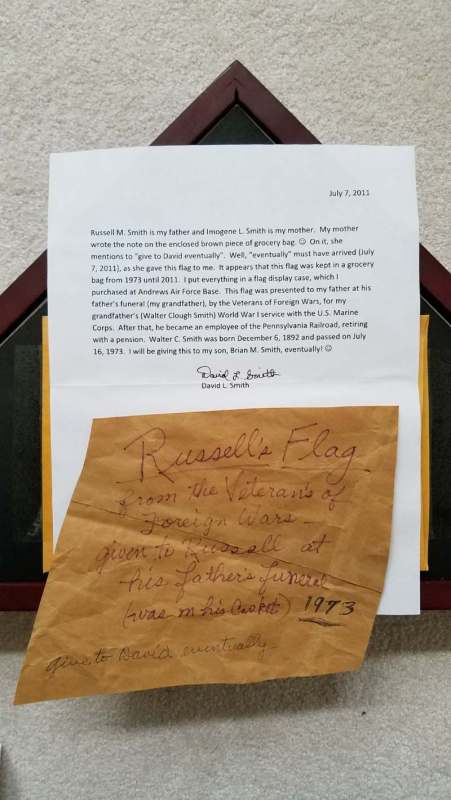 July 7, 2011
Russell M. Smith is my father and Imogene L. Smith is my mother. My mother
wrote the note on the enclosed brown piece of grocery bag. ☺ On it, she
mentions to "give to David eventually". Well, "eventually" must have arrived (July
7, 2011), as she gave this flag to me. It appears that this flag was kept in a grocery
bag from 1973 until 2011. I put everything in a flag display case, which I
purchased at Andrews Air Force Base. This flag was presented to my father at his
father's funeral (my grandfather), by the Veterans of Foreign Wars, for my
grandfather's (Walter Clough Smith) World War I service with the U.S. Marine
Corps. After that, he became an employee of the Pennsylvania Railroad, retiring
with a pension. Walter C. Smith was born December 6, 1892 and passed on July
16, 1973. I will be giving this to my son, Brian M. Smith, eventually! ☺
David L Smith
David L. Smith
Russell's Flag
from the Veteran's of
Foreign Wars —
given to Russell at
his father's funeral
(was on his casket) 1973
give to David eventually —